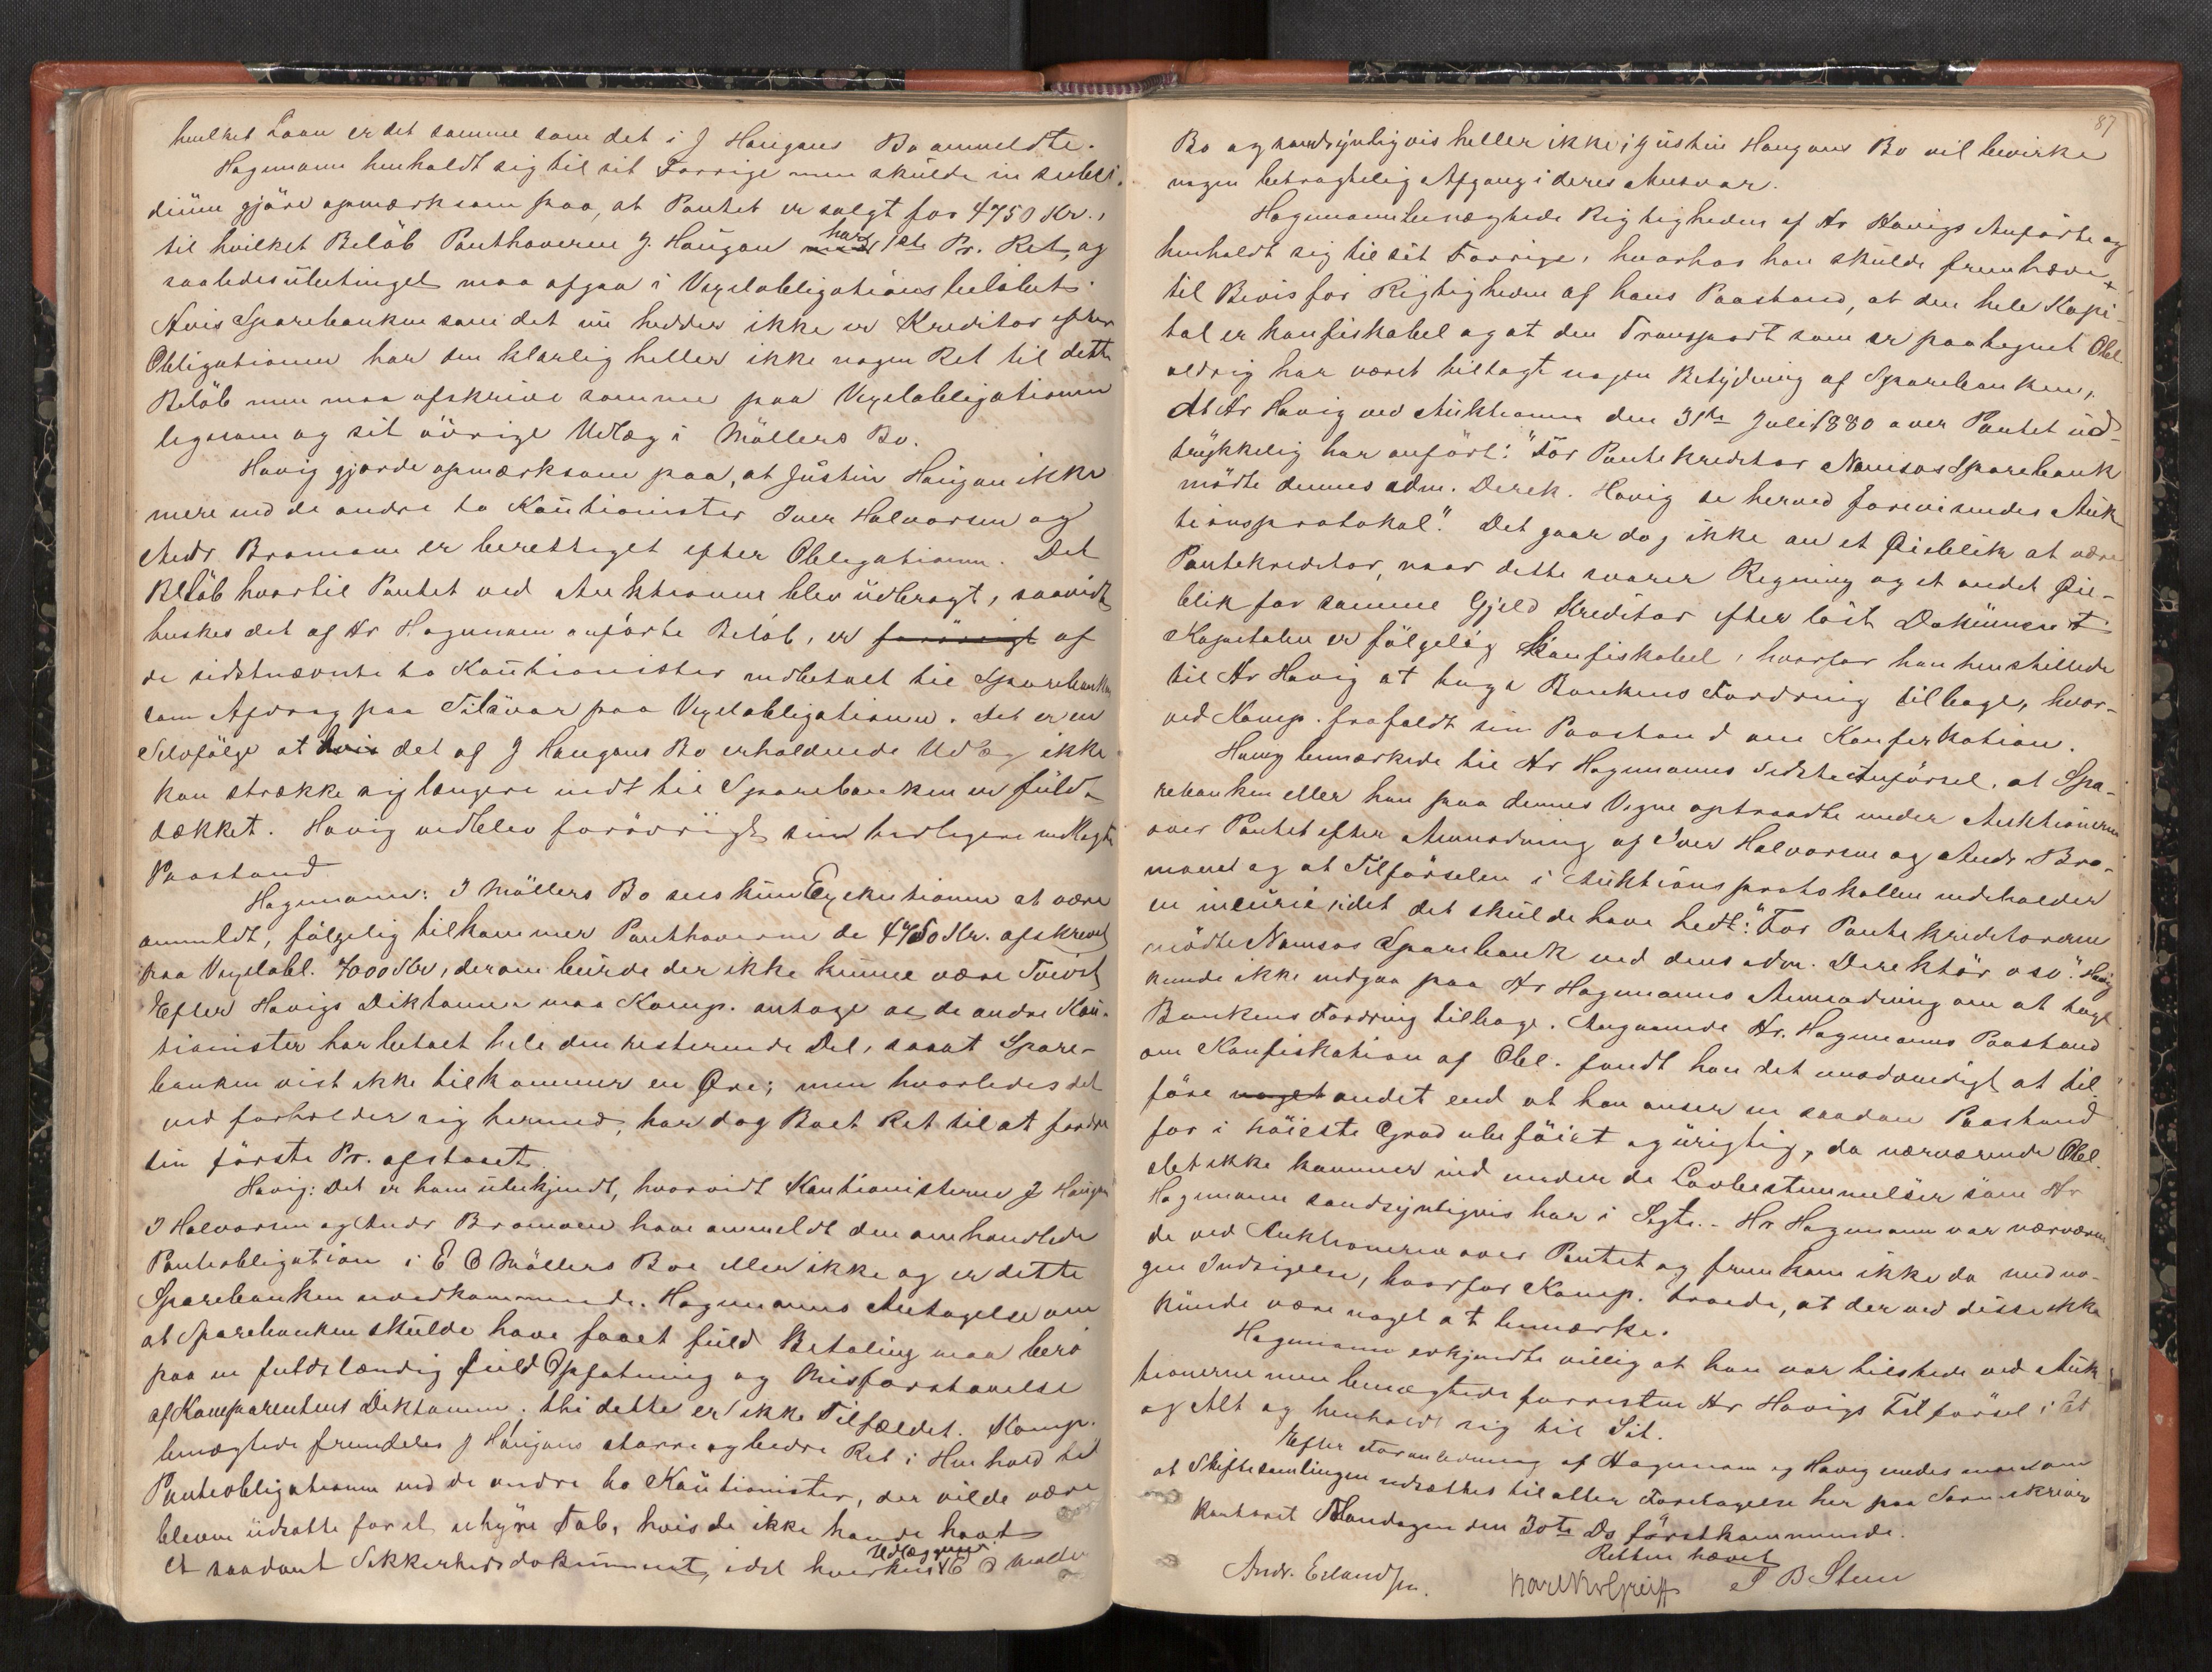 hvilket Laan er det samme som det i J Haugans Bo anmeldte.
Hagemann henholdt sig til sit Forrige men skulde in subsi-
dium gjöre opmærksom paa, at Pantet er solgt for 4750 Kr.,
til hvilket Belöb Panthaveren J. Haugan har 1ste Pr. Ret, og
saaledes ubetinget maa afgaa i Vexelobligationsbelöbet.
Hvis Sparebanken som det nu hedder ikke er Kreditor efter
Obligationen har den klarlig heller ikke nogen Ret til dette
Belöb men maa afskrive samme paa Vexelobligationen
ligesom og sit övrige Udlæg i Möllers Bo.
Havig gjorde opmærksom paa, at Justin Haugan ikke
mere end de andre to Kautionister Iver Halvorsen og
Andr. Bromoen er berettiget efter Obligationen. Det
Belöb hvortil Pantet ved Auktionen blev udbragt, saavidt
huskes det af Hr Hagemann anförte Belöb, er forövrigt af
de sidstnævnte to Kautionister indbetalt til Sparebanken
som Afdrag paa Tilsvar paa Vexelobligationen. Det er en
Selvfölge at hvis det af J Haugans Bo erholdende Udlæg ikke
kan strække sig længere indt til Sparebanken er fuld-
dækket. Havig vedblev forövrigt sin tidligere nedlagte
Paastand
Hagemann: I Möllers Bo sees kun Exekutionen at være
anmeldt, fölgelig tilkommer Panthaveren de 4750 Kr. afskrevet
paa Vexelobl. 7000 Kr, derom burde der ikke kunne være Tvist
Efter Havigs Diktamen maa Komp. antage at de andre Kau-
tionister har betalt hele den resterende Del, saaat Spare-
banken vist ikke tilkommer en Öre; men hvorledes det
end forholder sig hermed, har dog Boet Ret til at fordre
sin förste Pr. afstaaet.
Havig: Det er ham ubekjendt, hvorvidt Kautionisterne J Haugan
I Halvorsen og Andr Bromoen have anmeldt den omhandlede
Panteobligation i E C Möllers Bo eller ikke og er dette
Sparebanken uvedkommende. Hagemanns Antagelse om
at Sparebanken skulde have faaet fuld Betaling maa bero
paa en fuldstændig feild Opfatning og Misforstaaelse
af Komparentens Diktamen, thi dette er ikke Tilfældet. Komp.
benægtede fremdeles J Haugans större og bedre Ret i Henhold til
Panteobligationen end de andre to Kautionister, der vilde være
blevne udsatte for et uhyre Tab, hvis de ikke havde havt
et saadant Sikkerhedsdokument, idet hverken Udlægget i E C Möllers
87
Bo og sandsynligvis heller ikke i Justin Haugans Bo vil bevirke
nogen betragtelig Afgang i deres Ansvar.
Hagemann benægtede Rigtigheden af Hr Havigs Anförte og
henholdt sig til sit Forrige, hvorhos han skulde fremhæve
til Bevis for Rigtigheden af hans Paastand, at den hele Kapi-
tal er konfiskabel og at den Transport som er paategnet Obl.
aldrig har været tillagt nogen Betydning af Sparebanken,
At Hr Havig ved Auktionen den 31te Juli 1880 over Pantet ud-
trykkelig har anfört: "For Pantekreditor Namsos Sparebank
mödte dennes adm. Direk. Havig se herved foreviseudes Auk
tionsprotokol." Det gaar dog ikke an et Öieblik at være
Pantekreditor, naar dette svarer Regning og et andet Öie-
blik for samme Gjeld Kreditor efter löst Dokument
Kapitalen er fölgelig konfiskabel, hvorfor han henstillede
til Hr Havig at tage Bankens Fordring tilbage, hvor-
ved Komp. frafaldt sin Paastand om Konfiskation.
Havig bemærkede til Hr Hagemanns sidste Anförsel, at Spa-
rebanken eller han paa dennes Vegne optraadte under Auktionen
over Pantet efter Anmodning af Iver Halvorsen og Andr. Bro-
moen og at Tilförselen i Auktionsprotokollen indeholder
en incurie, idet det skulde have hedt: "For Pantekreditorerne
mödte Namsos Sparebank ved dens adm. Direktör osv". Havig
kunde ikke indgaa paa Hr Hagemanns Anmodning om at tage
Bankens Fordring tilbage. Angaaende Hr. Hagemanns Paastand
om Konfiskation af Obl. fandt han det unödvendigt at til-
före noget andet end at han anser en saadan Paastand
for i höieste Grad ubeföiet og urigtig, da nærværende Obl.
slet ikke kommer ind under de Lovbestemmelser som Hr
Hagemann sandsynligvis har i Sigte.- Hr Hagemann var nærværen-
de ved Auktionerne over Pantet og fremkom ikke da med no-
gen Indsigelse, hvorfor Komp. troede, at der ved disse ikke
kunde være noget at bemærke.
Hagemann erkjendte villig at han var tilstede ved Auk
tionerne men benægtede forresten Hr Havigs Tilförsel i Et
og Alt og henholdt sig til Sit.
Efter Foranledning af Hagemann og Havig enedes man om
at Skiftesamlingen udsættes til atter Foretagelse her paa Sorenskriver
kontoret Mandagen den 30te Ds förstkommende.
Retten hævet
Andr. Erlandsen. Karl Kr Greiff T B Steen